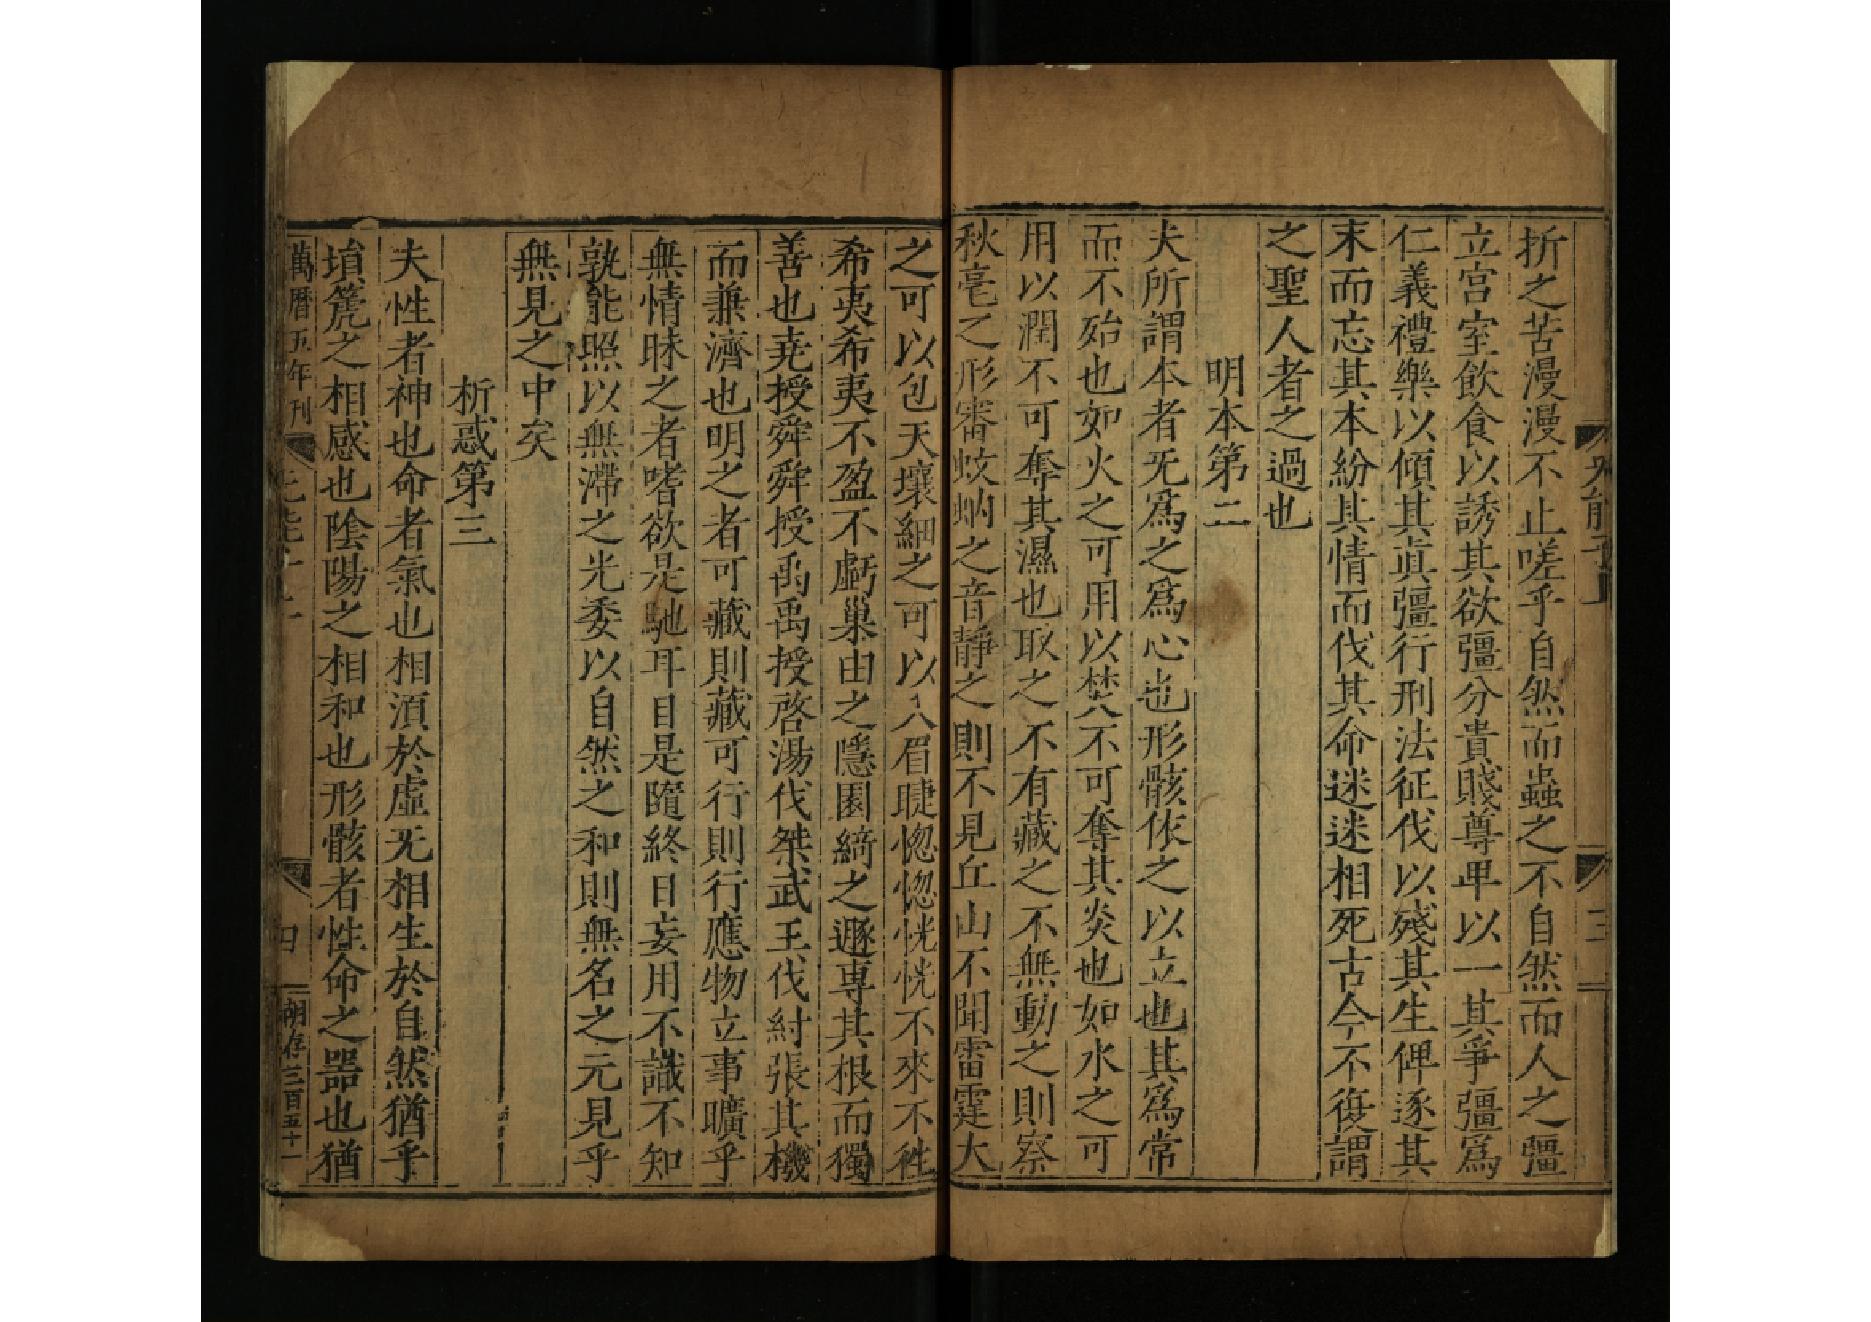 折之苦漫漫不止嗟乎自然而蟲之不自然而人之彊
立宫室飲食以誘其欲彊分貴賤尊卑以一其爭彊爲
仁義禮樂以傾其眞彊行刑法征伐以殘其生俾逐其
末而忘其本紛其情而伐其命迷迷相死古今不復謂
之聖人者之過也
明本第二
夫所謂本者无爲之爲心也形骸依之以立也其爲常
而不殆也如火之可用以焚不可奪其炎也如水之可
用以潤不可奪其濕也取之不有藏之不無動之則察
秋毫之形審蚊蚋之音靜之則不見丘山不聞雷霆大
之可以包天壤細之可以入眉睫惚惚恍恍不來不徃
希夷希夷不盈不虧巢由之隱園綺之遯專其根而獨
善也尭授舜舜授禹禹授啓湯伐桀武王伐紂張其機
而兼濟也明之者可藏則藏可行則行應物立事曠乎
無情昧之者嗜欲是馳耳目是隨終日妄用不識不知
孰能照以無滯之光委以自然之和則無名之元見乎
無見之中矣
析惑第三
夫性者神也命者氣也相湏於虛无相生於自然猶乎
塤箎之相感也陰陽之相和也形骸者性命之噐也猶
萬曆五年刊
四
朝存三百五十一